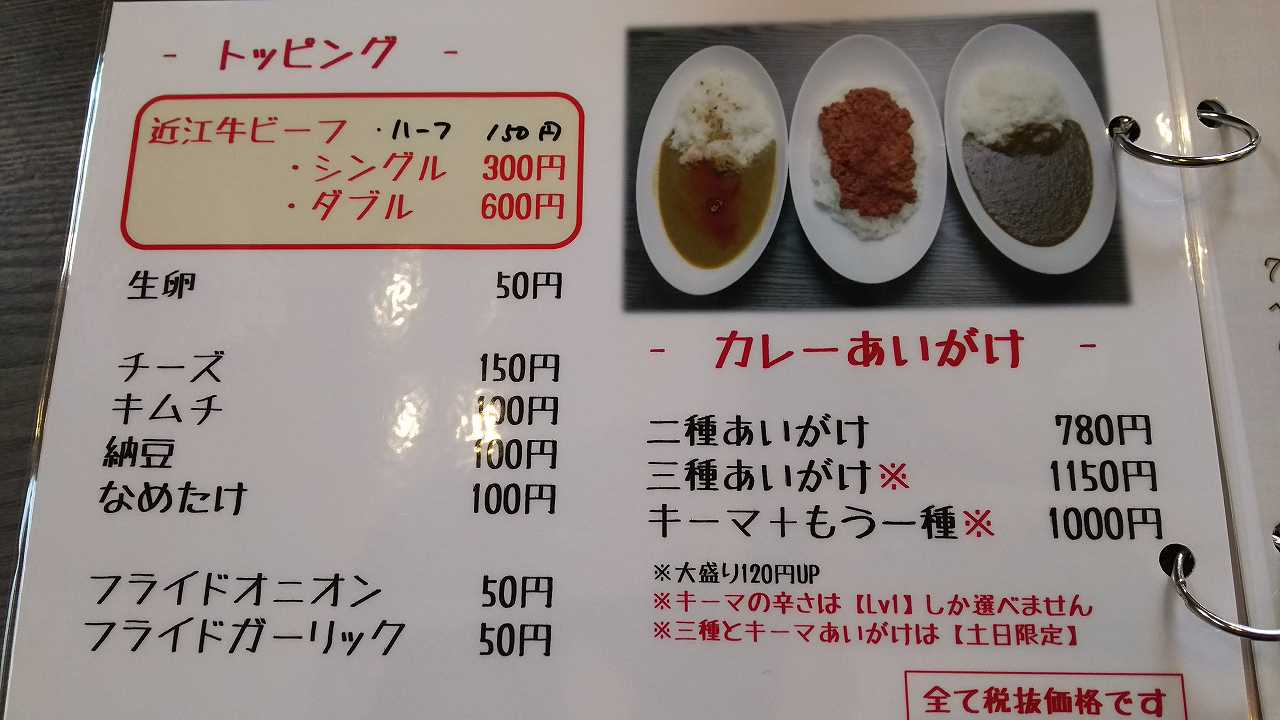 - トッピング -
近江牛ビーフ ・ハーフ 150円
・シングル 300円
・ダブル 600円
生卵 50円
チーズ 150円
キムチ 100円
納豆 100円
なめたけ 100円
フライドオニオン 50円
フライドガーリック 50円
- カレーあいがけ -
二種あいがけ 780円
三種あいがけ※ 1150円
キーマ+もう一種※ 1000円
※大盛り120円UP
※キーマの辛さは【Lv1】しか選べません
※三種とキーマあいがけは【土日限定】
全て税抜価格です